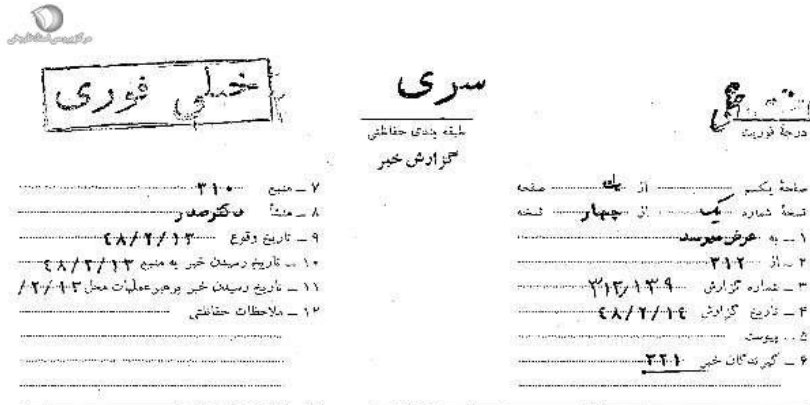 مرکز بررسی اسناد تاریخی
خیلی فوری
سری
طبقه بندی حفاظتی
گزارش خبر
درجهٔ فوریت
صفحهٔ یکم از یک صفحه
نسخهٔ شماره یک از چهار نسخه
۱ ــ به عرض میرسد
۲ ــ از ۳۱۲
۳ ــ شماره گزارش ۳۱۲/۱۳۹
۴ ــ تاریخ گزارش ۴۸/۲/۱۴
۵ ــ پیوست
۶ ــ گیرندگان خبر ۲۲۱
۷ ــ منبع ۳۱۰
۸ ــ منشأ دکتر صدر
۹ ــ تاریخ وقوع ۴۸/۲/۱۳
۱۰ ــ تاریخ رسیدن خبر به منبع ۴۸/۲/۱۳
۱۱ ــ تاریخ رسیدن خبر برهبر عملیات محل ۲/۱۳/
۱۲ ــ ملاحظات حفاظتی